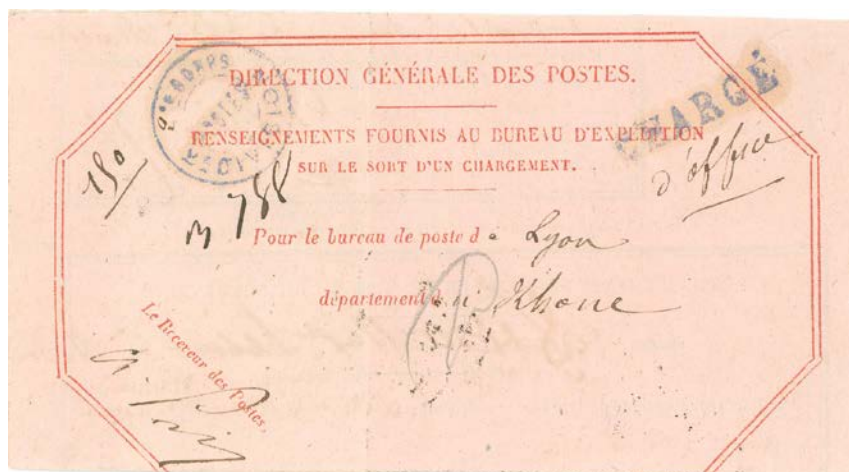 DIRECTION GÉNÉRALE DES POSTES.
CHARGÉ
RENSEIGNEMENTS FOURNIS AU BUREAU D'EXPÉDITION
SUR LE SORT D'UN CHARGEMENT.
d'office
150
788
Pour le bureau de poste d e Lyon
département d u Rhone
Le Receveur des Postes,